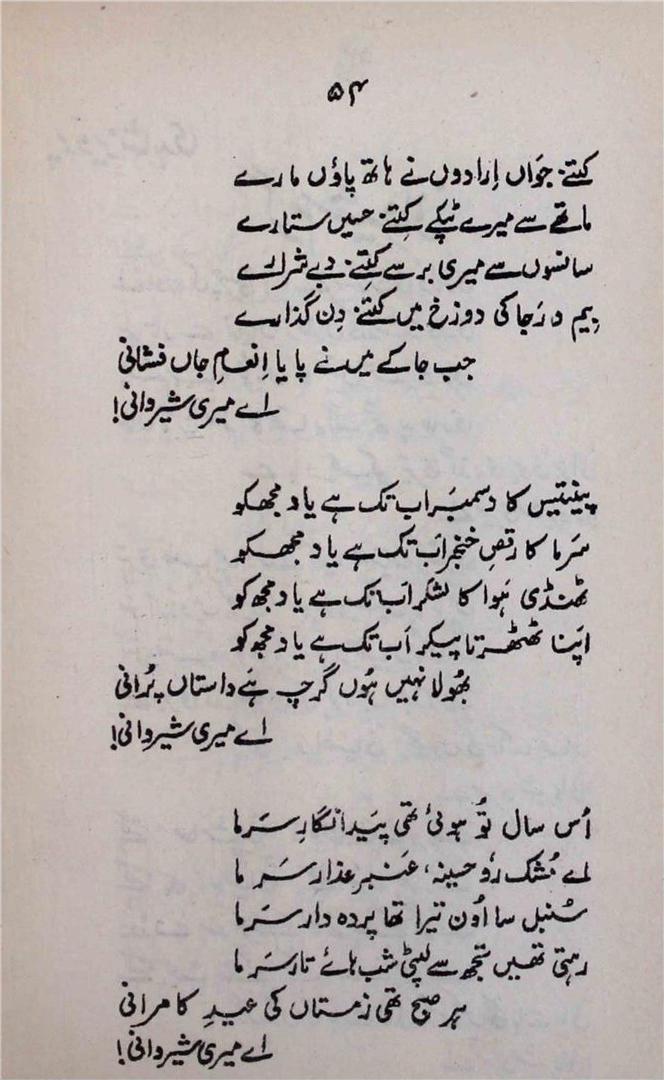 ۵۴
کتنے جَواں اِرادوں نے ہاتھ پاؤں مارے
ماتھے سے میرے ٹپکے کِتنے حسیں ستارے
سانسوں سے میری برسے کِتنے دبے شرارے
بِیم و رَجا کی دوزخ میں کتنے دِن گذارے
جب جا کے میں نے پایا اِنعامِ جاں فشانی
اے میری شیروانی!
پینتیس کا دسمبر اب تک ہے یاد مجھکو
سَرما کا رقصِ خنجر اَب تک ہے یاد مجھکو
ٹھنڈی ہَوا کا لشکر اَب تک ہے یاد مجھ کو
اپَنا ٹھٹھرتا پیکر اَب تک ہے یاد مجھ کو
بھُولا نہیں ہُوں گرچہ ہَے داستاں پُرانی
اے میری شیروانی!
اُس سال تُو ہوئی تھی پَیدا نگارِ سَرما
اے مُشک رُو حسینہ، عَنبر عذارِ سَرما
سُنبل سا اُون تیرا تھا پردہ دارِ سَرما
رہتی تھیں تجھ سے لپٹی شب ہائے تارِ سَرما
ہر صبح تھی زمستاں کی عیدِ کامرانی
اے میری شیروانی!